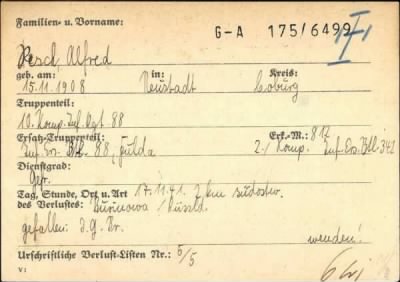 Familien- u. Vorname:
G-A 175/6499 I
Resch, Alfred
geb. am: in: Kreis:
15.11.1908 Neustadt Coburg
Truppenteil:
10. Komp. Inf. Rgt. 88
Ersatz-Truppenteil: Erk.-M.: 812
Inf. Ers. Btl. 88, Fulda 2./ Komp. Inf. Ers. Btl. 342
Dienstgrad:
Gefr.
Tag, Stunde, Ort u. Art 17.11.41. 7 km südostw.
des Verlustes: /Russld.
gefallen: wenden!
Urschriftliche Verlust-Listen Nr.: 5/5
V: